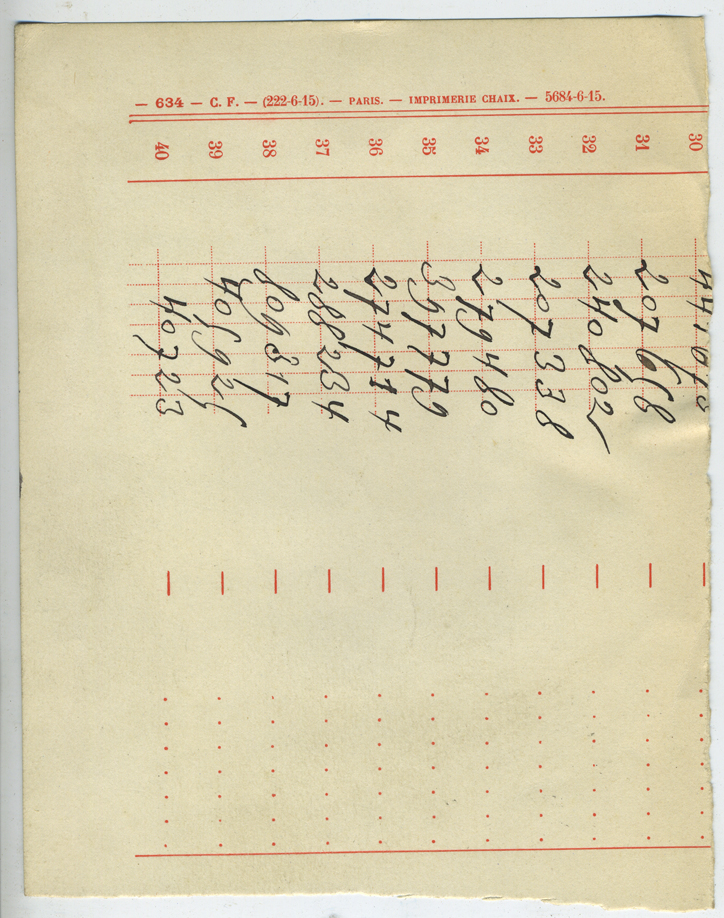 — 634 — C. F. — (222-6-15). — PARIS. — IMPRIMERIE CHAIX. — 5684-6-15.
30
31 207 658
32 240 802
33 207 338
34 279 480
35 397 779
36 274 774
37 288 234
38 809 317
39 40 592
40 40 723